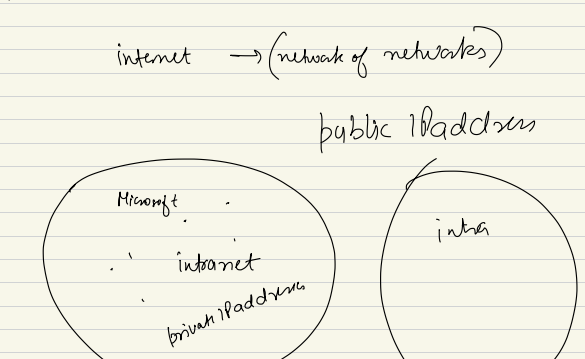 internet → (network of networks)
public IPaddress
Microsoft
intra
intranet
private IPaddresses